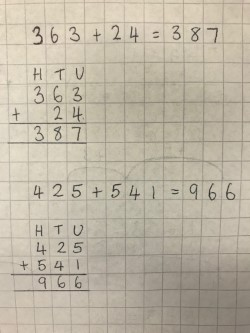 363 + 24 = 387
H T U
3 6 3
+ 2 4
3 8 7
425 + 541 = 966
H T U
4 2 5
+ 5 4 1
9 6 6